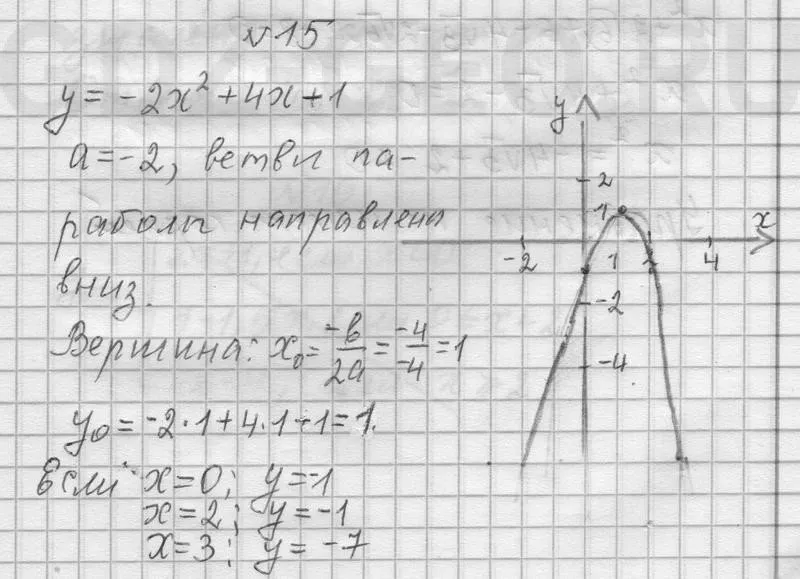 №15
y = -2x² + 4x + 1
a = -2, ветви па-
раболы направлена
вниз.
Вершина: x₀ = -b/2a = -4/-4 = 1
y₀ = -2·1 + 4·1 - 1 = 1.
Если x = 0; y = -1
x = 2; y = -1
x = 3; y = -7
y
2
1
x
-2
1
2
4
-2
-4